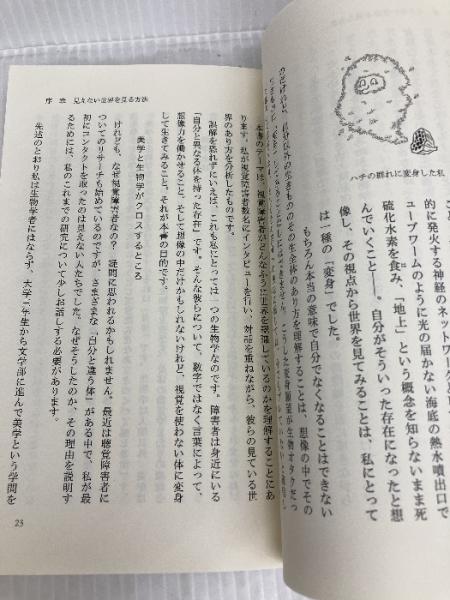 ハチの群れに変身した私
的に発火する神経のネットワーク
ューブワームのように光の届かない海底の熱水噴出口で
硫化水素を食み、「地上」という概念を知らないまま死
んでいくこと――。自分がそういった存在になったと想
像し、その視点から世界を見てみることは、私にとって
は一種の「変身」でした。
もちろん本当の意味で自分でなくなることはできない
を理解することは、想像の中でその
序章 見えない世界を見る方法
本書のテーマは、視覚障害者がどんなふうに世界を認識しているのかを理解することにあ
ります。私が視覚障害者数名にインタビューを行い、対話を重ねながら、彼らの見ている世
界のあり方を分析したものです。
誤解を恐れずにいえば、これも私にとっては一つの生物学なのです。障害者は身近にいる
「自分と異なる体を持った存在」です。そんな彼らについて、数字ではなく言葉によって、
想像力を働かせること。そして想像の中だけかもしれないけれど、視覚を使わない体に変身
して生きてみること。それが本書の目的です。
美学と生物学がクロスするところ
けれども、なぜ視覚障害者なの？ 疑問に思われるかもしれません。最近は聴覚障害者に
ついてのリサーチも始めているのですが、さまざまな「自分と違う体」がある中で、私が最
初にコンタクトを取ったのは見えない人たちでした。なぜそうしたのか、その理由を説明す
るためには、私のこれまでの研究について少しお話しする必要があります。
先述のとおり私は生物学者にはならず、大学三年生から文学部に進んで美学という学問を
23